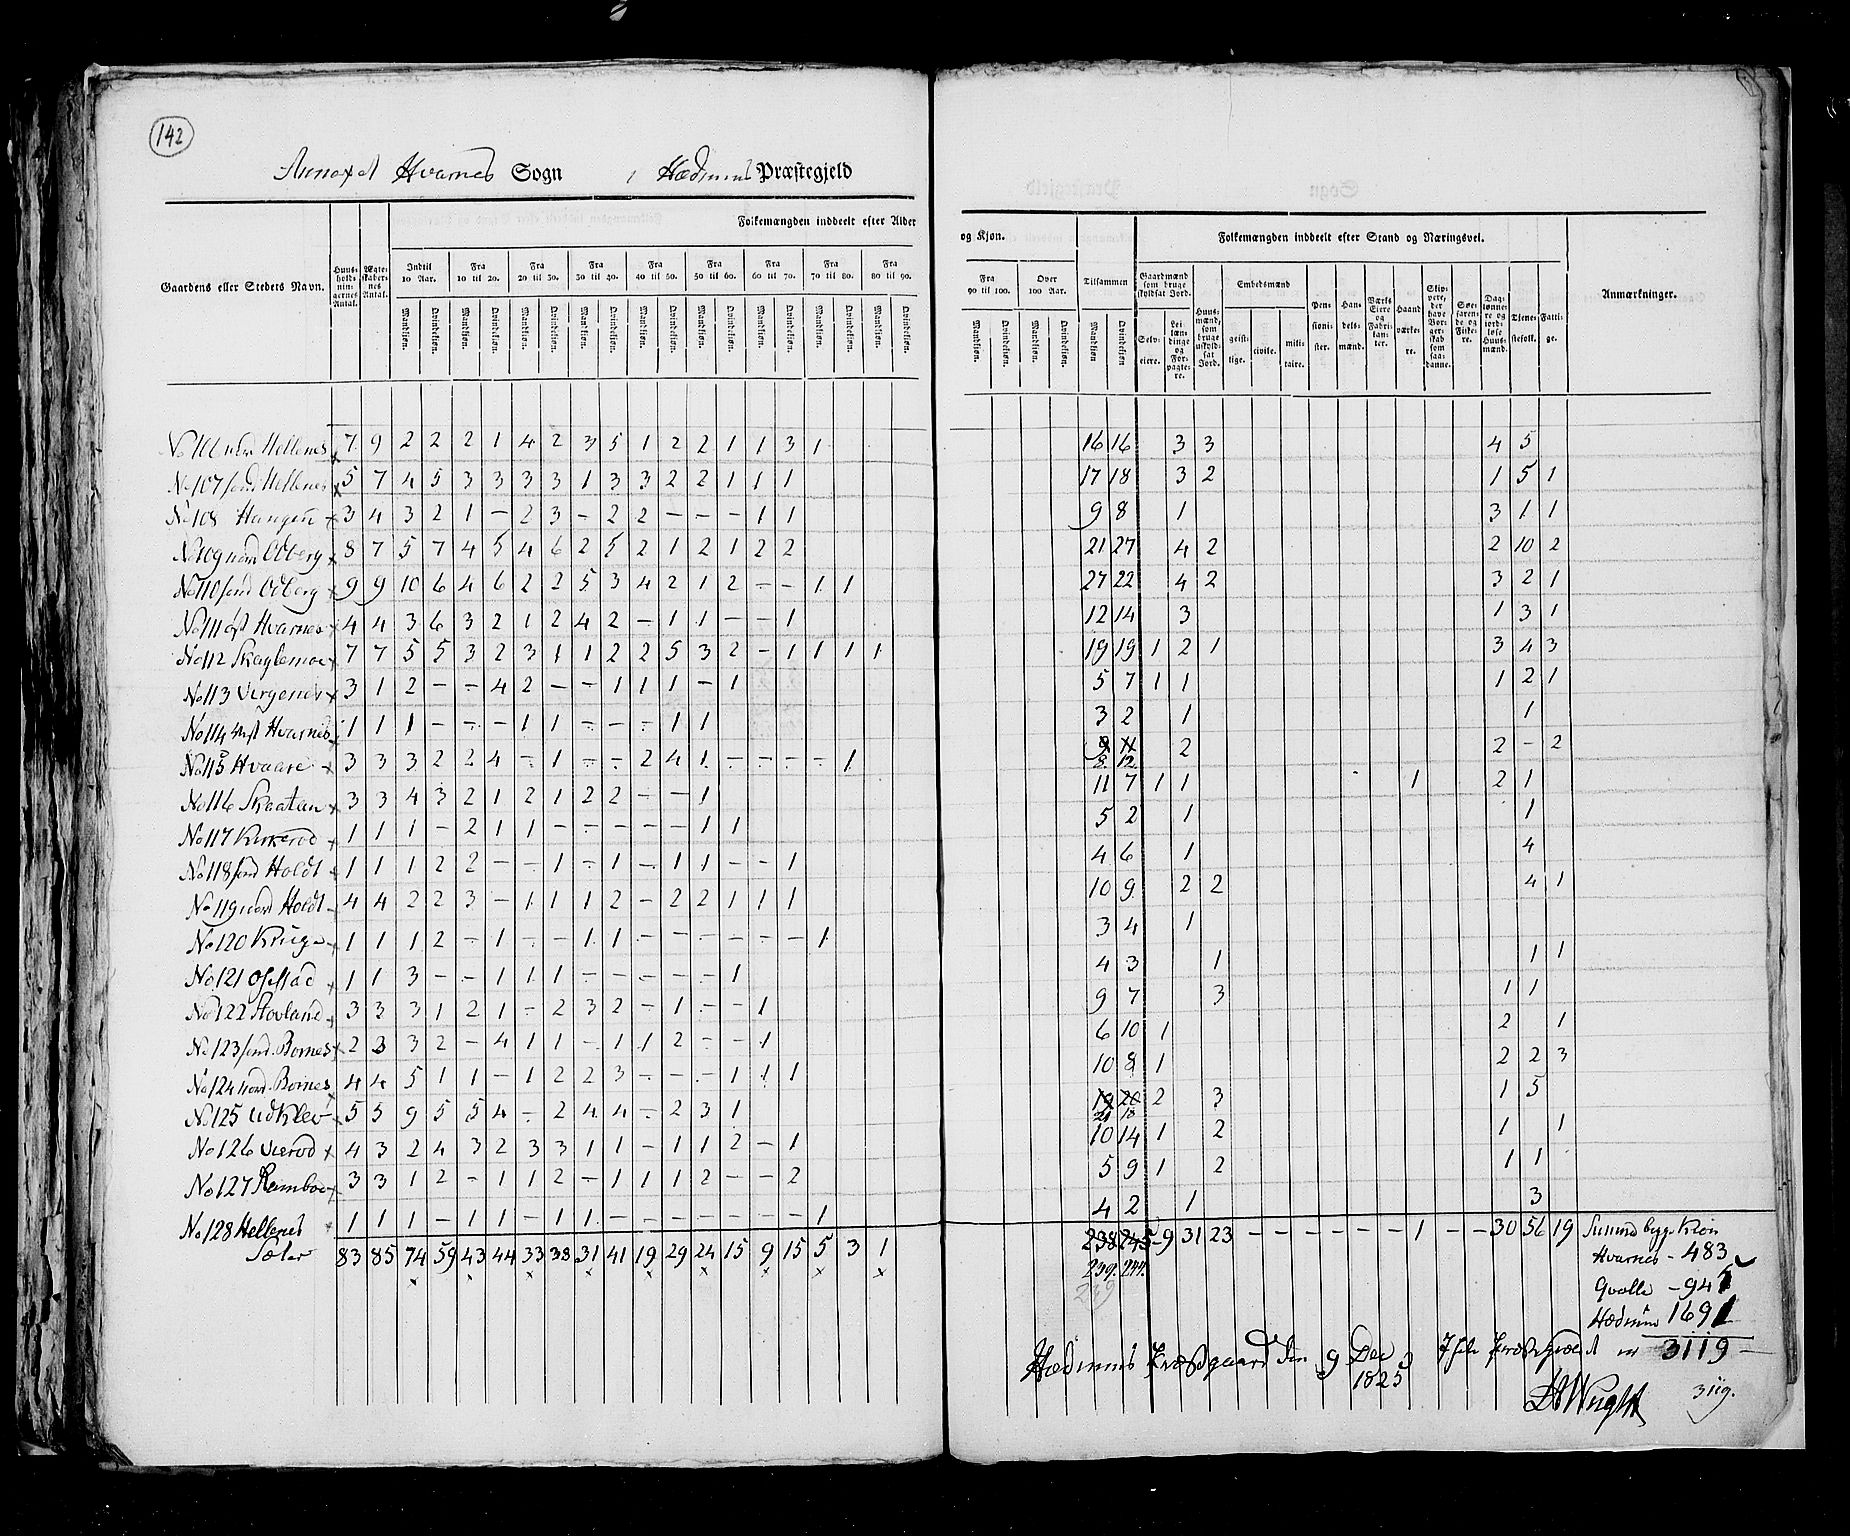 142
Annext Hvarnes Sogn i Hedrums Præstegjeld
Folkemængden inddeelt efter Alder og Kjøn.
Folkemængden inddeelt efter Stand og Næringsvei.
Gaardens eller Stedets Navn.
Huusholdningernes Antal.
Ægteskabernes Antal.
Indtil 10 Aar.
Fra 10 til 20.
Fra 20 til 30.
Fra 30 til 40.
Fra 40 til 50.
Fra 50 til 60.
Fra 60 til 70.
Fra 70 til 80.
Fra 80 til 90.
Fra 90 til 100.
Over 100 Aar.
Tilsammen
Mandkiøn. Qvindekiøn.
Gaardmænd som bruge skyldsat Jord.
Selveiere.
Leilændinge og Forpagtere.
Huusmænd, som bruge uskyldsat Jord.
Embedsmænd
geistlige. civile. militaire.
Pensionister.
Handelsmænd.
Værks Eiere og Fabrikanter.
Haandværkere.
Skippere, der have Borgerskab som saadanne.
Søefarende og Fiskere.
Daglønnere og jordløse Huusmænd.
Tjenestefolk.
Fattige.
Anmærkninger.
No 106 nor Hellenes 7 9 2 2 2 1 4 2 3 5 1 2 2 1 1 3 1 16 16 3 3 4 5
No 107 sønd Hellenes 5 7 4 5 3 3 3 3 1 3 3 2 2 1 1 1 17 18 3 2 1 5 1
No 108 Haugen 3 4 3 2 1 – 2 3 – 2 2 – – – 1 1 9 8 1 3 1 1
No 109 nord Odberg 8 7 5 7 4 5 4 6 2 5 2 1 2 1 2 2 21 27 4 2 2 10 2
No 110 sønd Odberg 9 9 10 6 4 6 2 2 5 3 4 2 1 2 – – 1 1 27 22 4 2 3 2 1
No 111 øst Hvarnes 4 4 3 6 3 2 1 2 4 2 – 1 1 – – 1 12 14 3 1 3 1
No 112 Skaglemoe 7 7 5 5 3 2 3 1 1 2 2 5 3 2 – 1 1 1 1 19 19 1 2 1 3 4 3
No 113 Vergenes 3 1 2 – – 4 2 – – 1 1 1 – 1 5 7 1 1 1 2 1
No 114 vest Hvarnes 1 1 1 – – – 1 1 – – – 1 1 3 2 1 1
No 115 Hvaare 3 3 3 2 2 4 – 1 – – 2 4 1 – – – – 1 9 11 8. 12. 2 2 – 2
No 116 Skaatan 3 3 4 3 2 1 2 1 2 2 – – 1 11 7 1 1 1 2 1
No 117 Kirkerod 1 1 1 – 2 1 1 – – – – – 1 1 5 2 1 1
No 118 sønd Holdt 1 1 1 2 2 – – 1 – 1 – 1 1 – – 1 4 6 1 4
No 119 nord Holdt 4 4 2 2 3 – 1 1 1 2 – 2 2 1 1 1 10 9 2 2 4 1
No 120 Kruge 1 1 1 2 – 1 – – 1 1 – – – – – – 1 3 4 1
No 121 1 1 3 – – 1 1 1 – – – – – 1 4 3 1 1 1
No 122 Hovland 3 3 3 1 2 1 – 2 3 2 – 1 – – 1 9 7 3 1 1
No 123 sønd. Bornes 2 3 3 2 – 4 1 1 – 1 1 2 – – 1 6 10 1 2 1
No 124 nord. Bornes 4 4 5 1 1 – 1 2 2 3 – – – 1 1 1 10 8 1 2 2 3
No 125 Udklev 5 5 9 5 5 4 – 2 4 4 – 2 3 1 19 20 21 18 2 3 1 5
No 126 Vierod 4 3 2 4 3 2 3 3 1 1 – 1 1 2 – 1 10 14 1 2 1 1
No 127 Ramboe 3 3 1 2 – 1 1 2 – 1 1 1 2 – – 2 5 9 1 2 1 1
No 128 Hellenes Sæter 1 1 1 – 1 1 – 1 1 – – – – – – – 1 4 2 1 3
83 85 74 59 43 44 33 38 31 41 19 29 24 15 9 15 5 3 1 238 245 9 31 23 – – – – – – 1 – – 30 56 19
239. 244.
239
Hvarnes – 483
Qvelle – 945
Hedrum 1691
3119
3119.
Hedrums Præstgaard den 9 Dec 1825
Wright